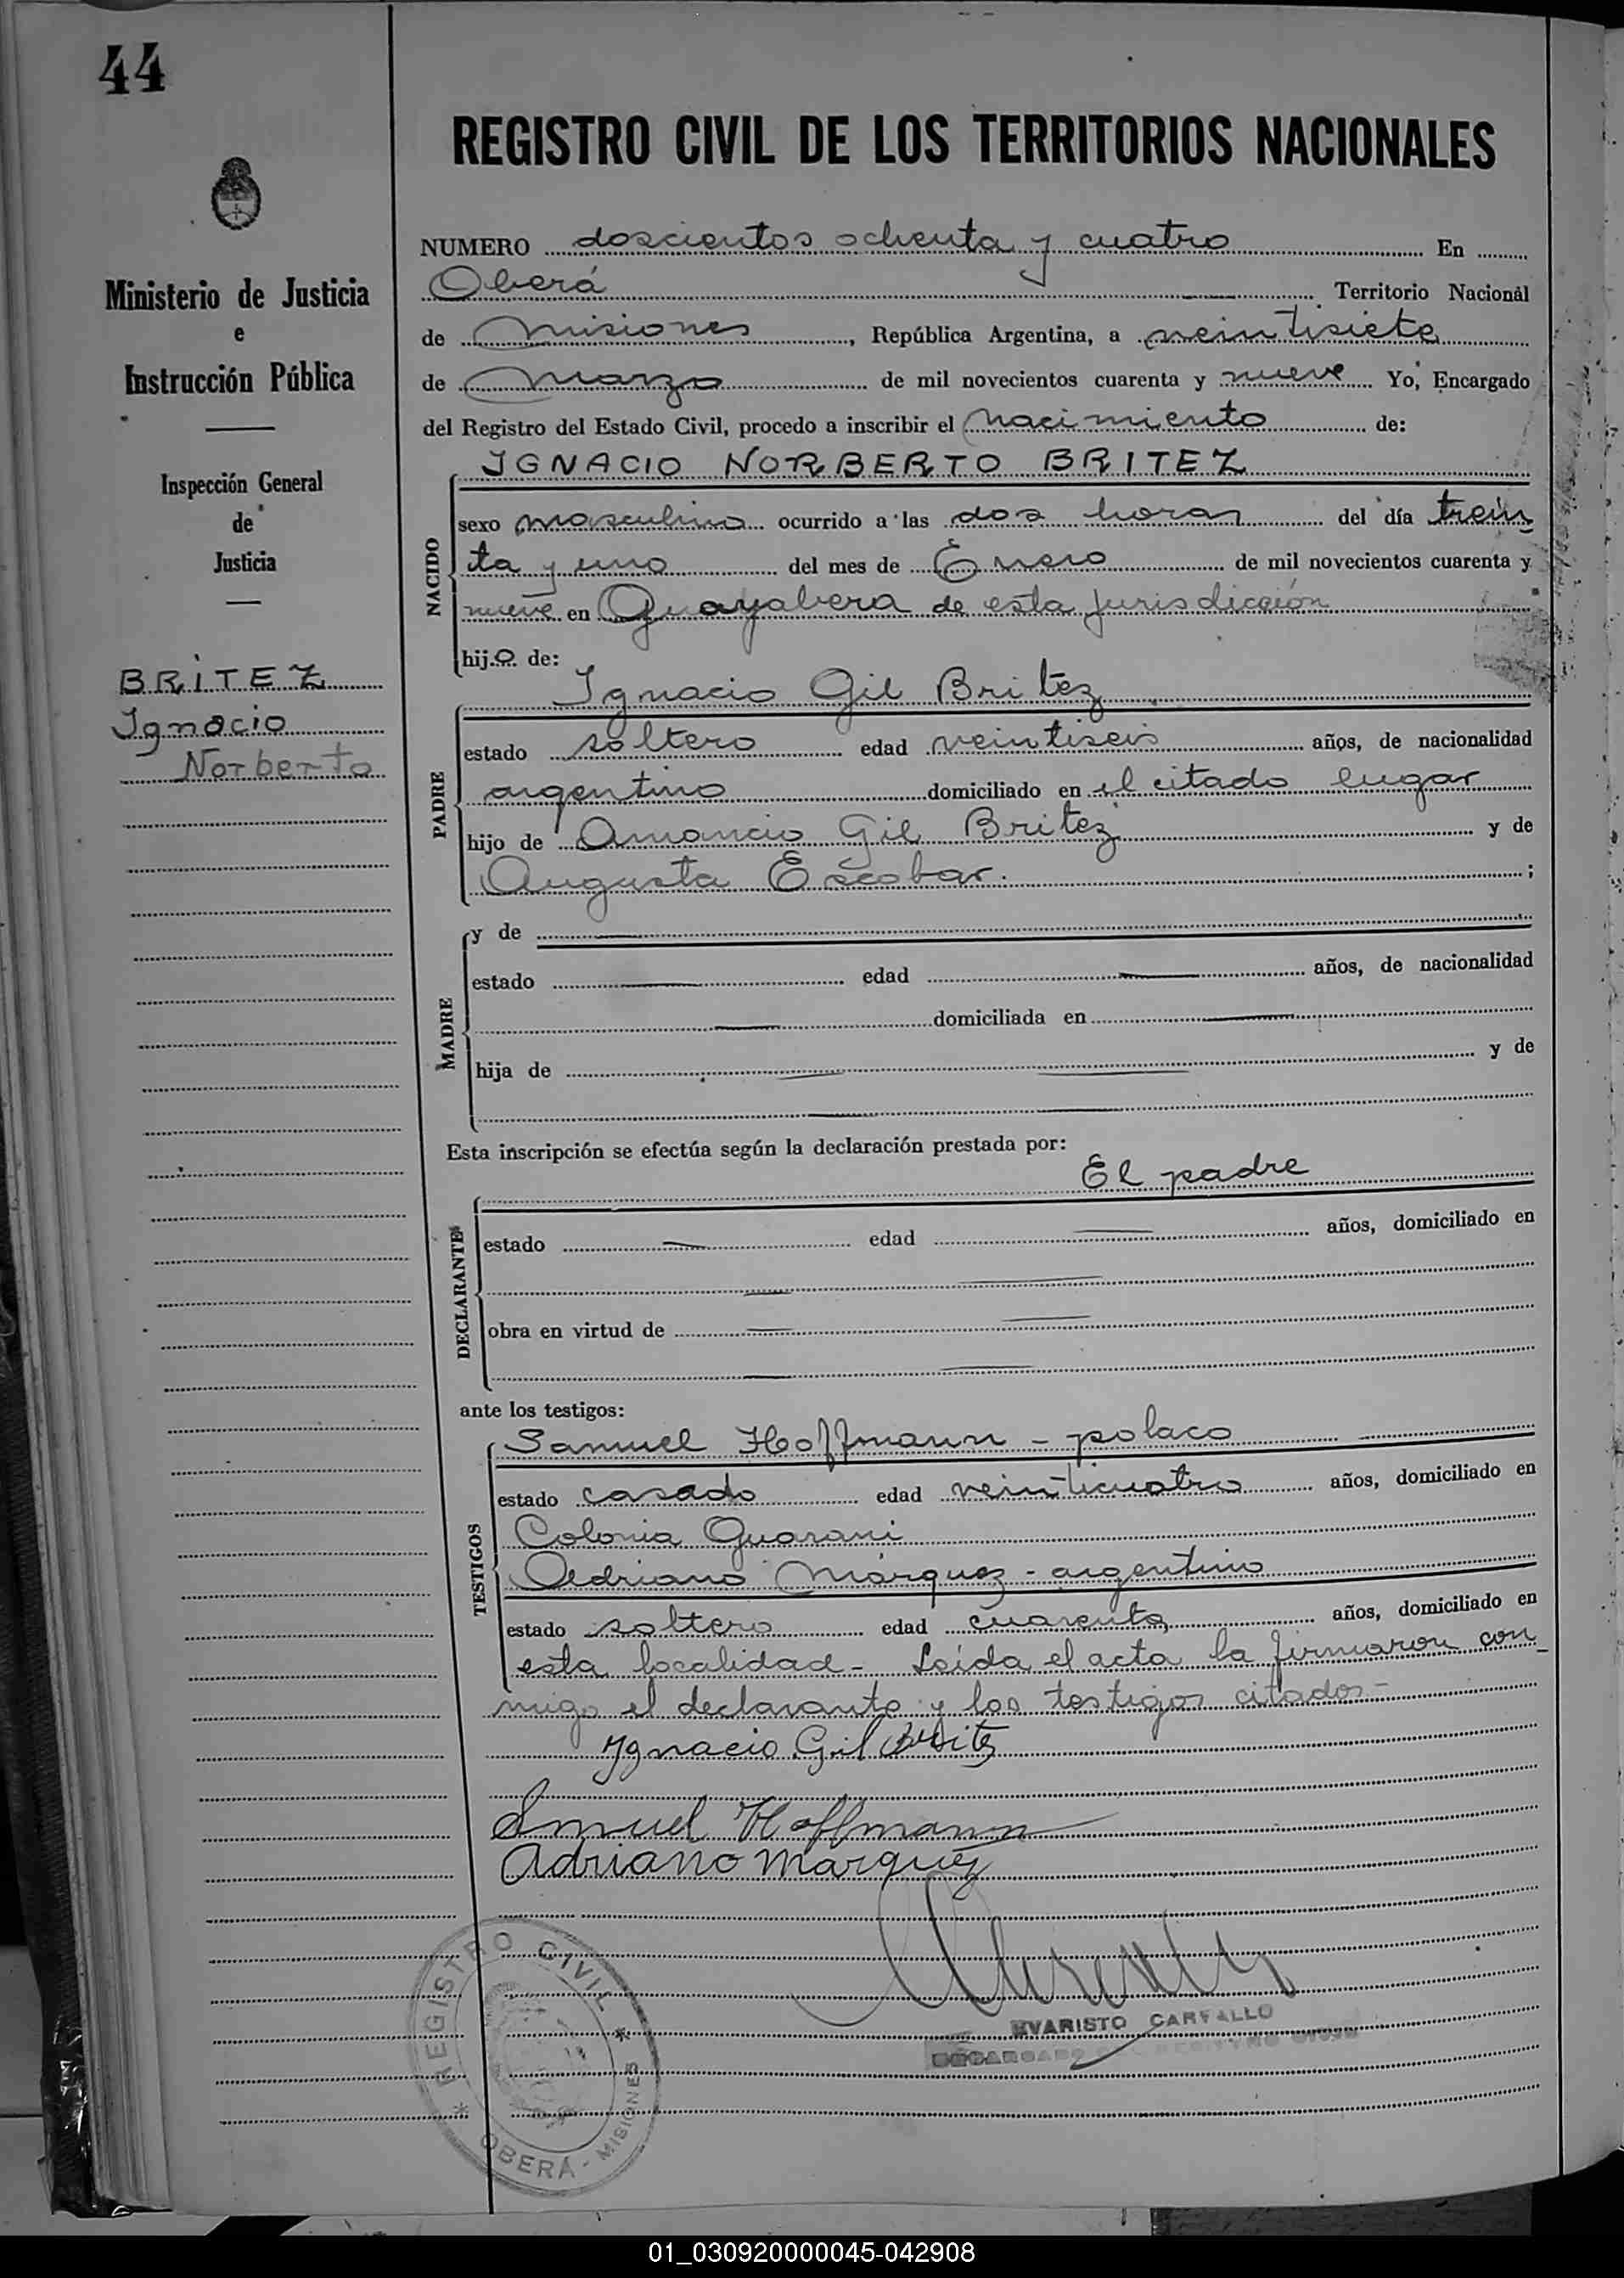 44
REGISTRO CIVIL DE LOS TERRITORIOS NACIONALES
Ministerio de Justicia
e
Instrucción Pública
Inspección General
de
Justicia
BRITEZ
Ignacio
Norberto
NUMERO doscientos ochenta y cuatro En
Oberá Territorio Nacional
de Misiones, República Argentina, a veintisiete
de Marzo de mil novecientos cuarenta y nueve Yo, Encargado
del Registro del Estado Civil, procedo a inscribir el nacimiento de:
IGNACIO NORBERTO BRITEZ
NACIDO
sexo masculino ocurrido a las dos horas del día trein
ta y uno del mes de Enero de mil novecientos cuarenta y
nueve en Guayabera de esta jurisdicción
hijo de:
Ignacio Gil Britez
PADRE
estado soltero edad veintiseis años, de nacionalidad
argentino domiciliado en el citado lugar
hijo de Amancio Gil Britez y de
Augusta Escobar. ;
MADRE
y de
estado edad años, de nacionalidad
domiciliada en
hija de y de
Esta inscripción se efectúa según la declaración prestada por:
El padre
DECLARANTE
estado edad años, domiciliado en
obra en virtud de
ante los testigos:
TESTIGOS
Samuel Hoffmann - polaco
estado casado edad veinticuatro años, domiciliado en
Colonia Guarani
Adriano Márquez - argentino
estado soltero edad cuarenta, años, domiciliado en
esta localidad - Leída el acta la firmaron con
migo el declarante y los testigos citados -
Ygnacio Gil Britz
Samuel Hoffmann
Adriano Marquez
EVARISTO CARVALLO
ENCARGADO REGISTRO CIVIL
REGISTRO CIVIL
OBERÁ - MISIONES
01_030920000045-042908